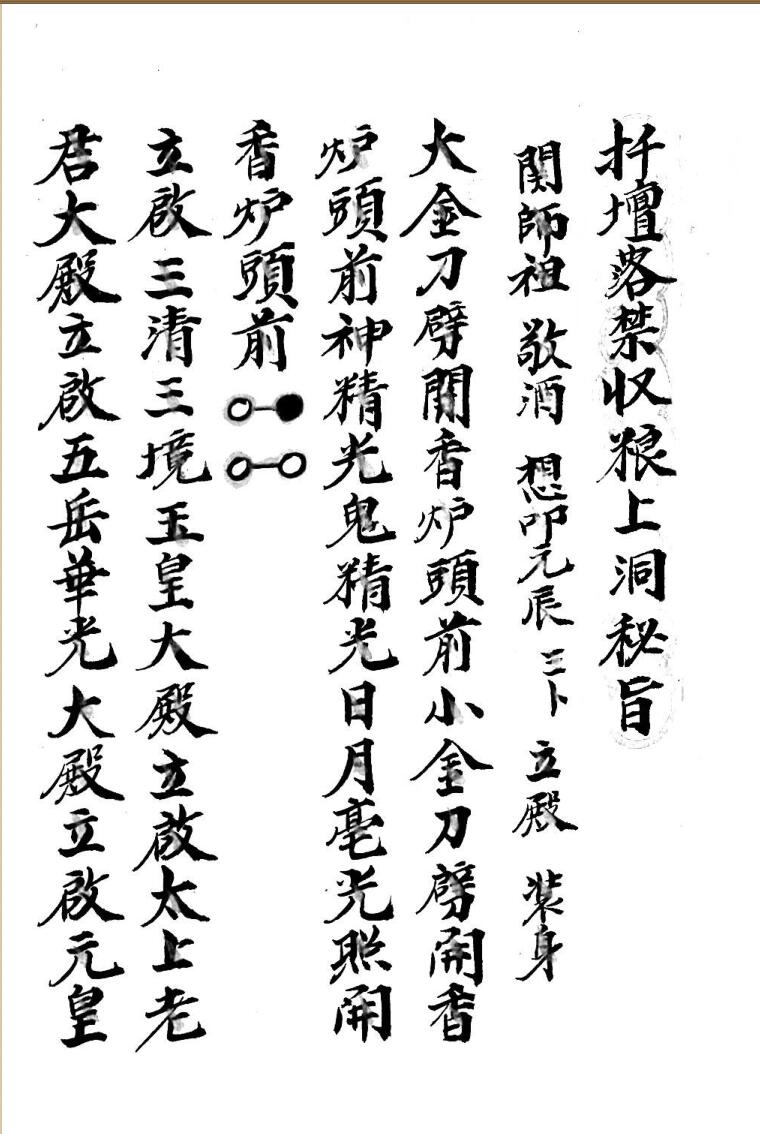 扦壇落禁収狼上洞秘旨
関師祖 敬酒 想叩元辰 三卜 立殿 装身
大金刀劈開香炉頭前小金刀劈開香
炉頭前神精光鬼精光日月毫光照開
香炉頭前
立啟三清三境玉皇大殿立啟太上老
君大殿立啟五岳華光大殿立啟元皇